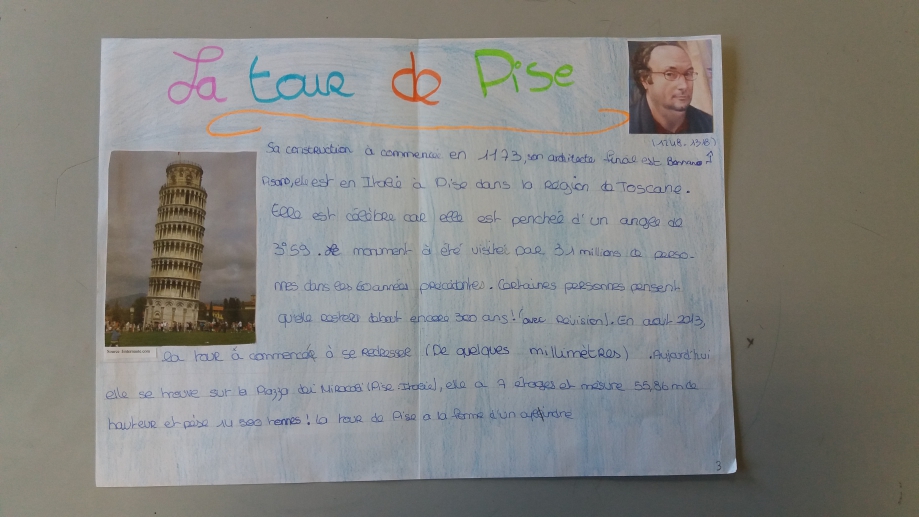 La tour de Pise
(1248-1318)
Sa construction à commencé en 1173, son architecte final est Bonanno
Pisano, elle est en Italie à Pise dans la Région da Toscane.
Elle est célèbre car elle est penchée d'un angle de
3°59. monument à été visitei par 31 millions de perso-
nnes dans les années precedentes. Certaines personnes pensent
qu'elle restera debout encore 300 ans! (avec Révision). En août 2013,
la tour à commencée à se redresser (De quelques millimètres). Aujourd'hui
elle se trouve sur la Piazza dei Miracoli (Pise-Italie), elle a 7 étages et mesure 55,86 m de
hauteur et pèse 14 500 tonnes! La tour de Pise a la forme d'un cylindre
3